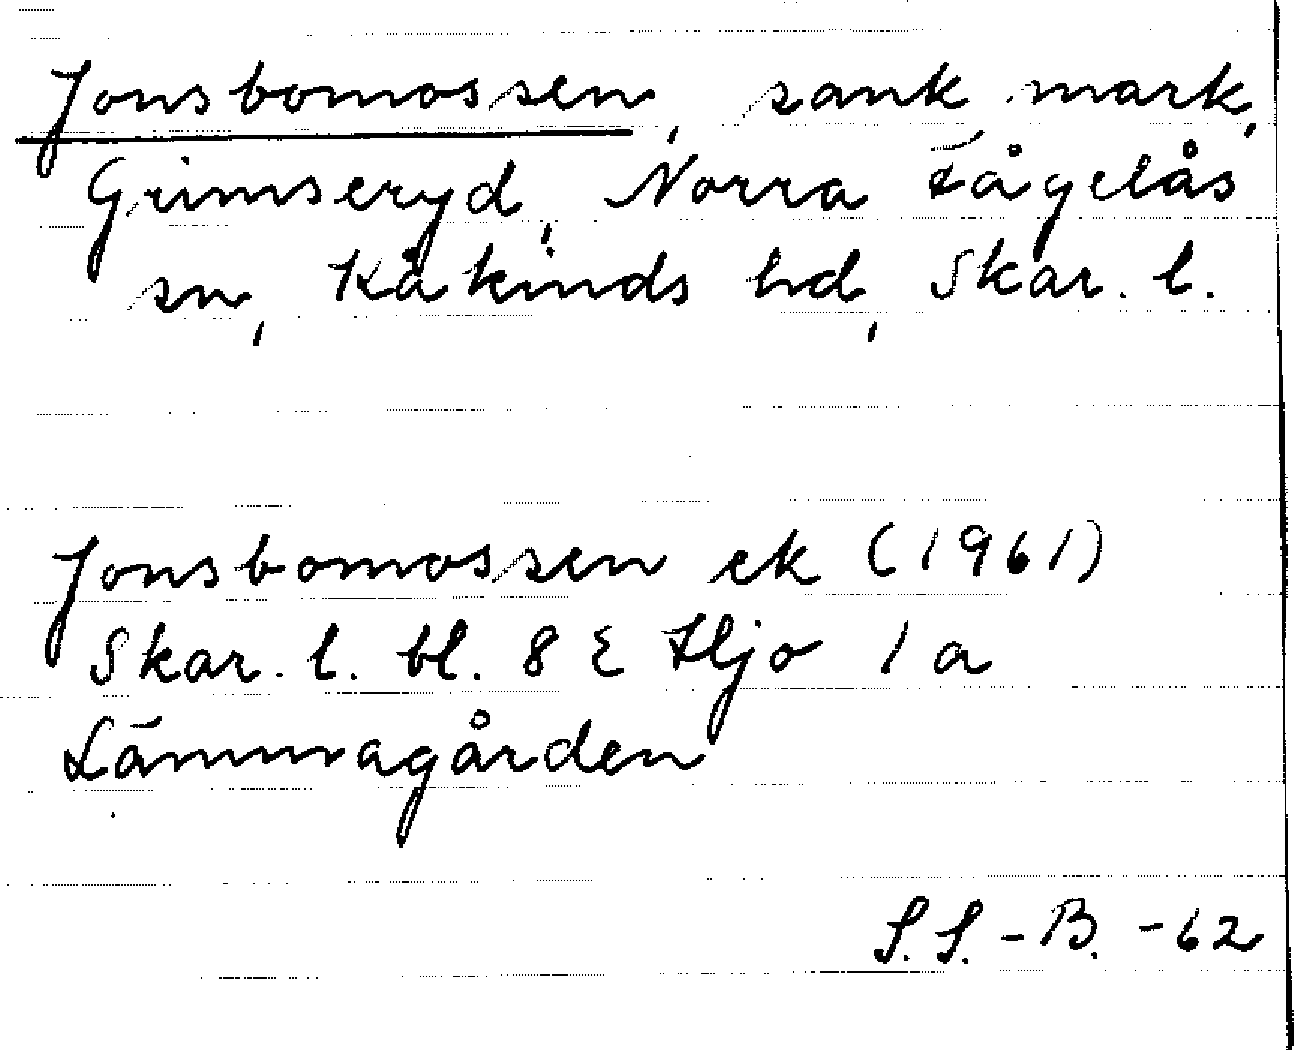 Jonsbomossen, sank mark,
Grimseryd, Norra Fågelås
sn, Kåkinds hd, Skar. l.
Jonsbomossen ek (1961)
Skar. l. bl. 8 E Hjo 1 a
Fämmagården
S.S.-B. -62